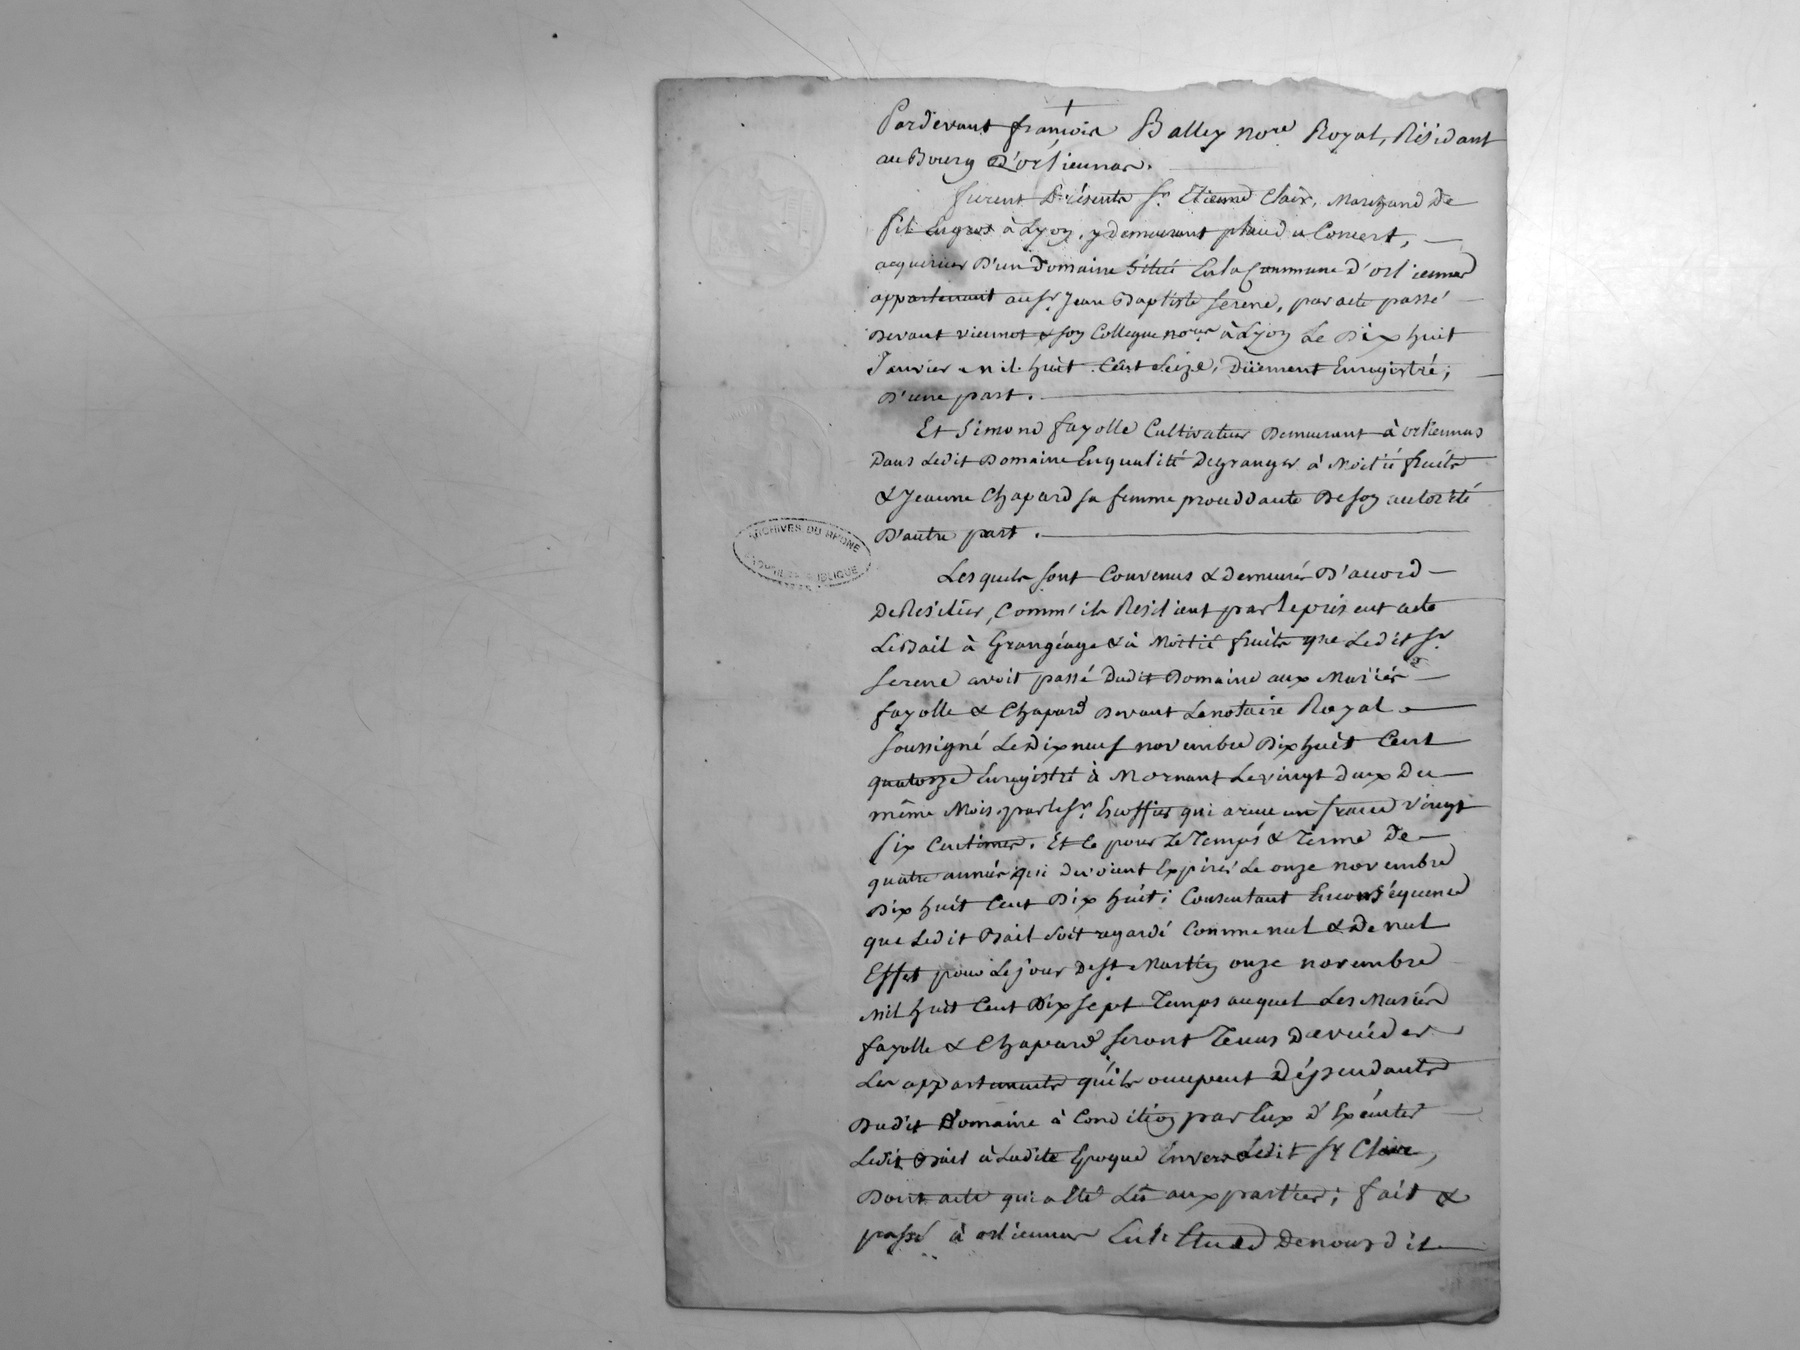 Pardevant françois Balley nore Royal, Résidant
au Bourg d'orliennas.
furent Présents sr. Etienne Clair, Marchand de
fil Engros à Lyon, y demeurant place du Concert,
acquereur D'un Domaine Situé En la Commune d'orliennas
appartenant au sr. Jean Baptiste serene, par acte passé
Devant viennot & son Collegue nores à Lyon Le Dix huit
Janvier mil huit Cent Seize, Düement Enregistré,
D'une part.
Et Simond fayolle Cultivateur Demeurant à orliennas
Dans Ledit Domaine En qualité De granger à Moitié fruits
& Jeanne Chapard sa femme procédante De son autorité
D'autre part.
ARCHIVES DU RHONE
Lesquels sont Convenus & demeurés D'accord
De Resilier, Comm' ils Resilient par le présent acte
Le Bail à Grangéage & à Moitié fruits que Ledit sr.
serene avoit passé Dudit Domaine aux Mariés
fayolle & Chapard Devant Le notaire Royal
soussigné Le Dix neuf novembre Dix huit Cent
quatorze Enregistré à Mornant Le vingt deux Du
même Mois par le sr. Escoffier qui a reçu un franc vingt
six Centimes. Et Ce pour Le Temps & Terme De
quatre années qui devoient Expirer Le onze novembre
Dix huit Cent Dix huit; Consentant En conséquence
que Ledit Bail soit regardé Comme nul & De nul
Effet pour Le jour De st. Martin onze novembre
Mil huit Cent Dix sept Temps auquel Les Mariés
fayolle & Chapard seront Tenus De vuider
Les appartements qu'ils occupent Dépendants
Dudit Domaine à Condition par Eux d'Exécuter
Ledit Bail à Ladite Epoque Envers Ledit sr Claire,
Dont acte qui a Eté Lû aux parties; fait &
passé à orliennas En l'Etude De nous dit